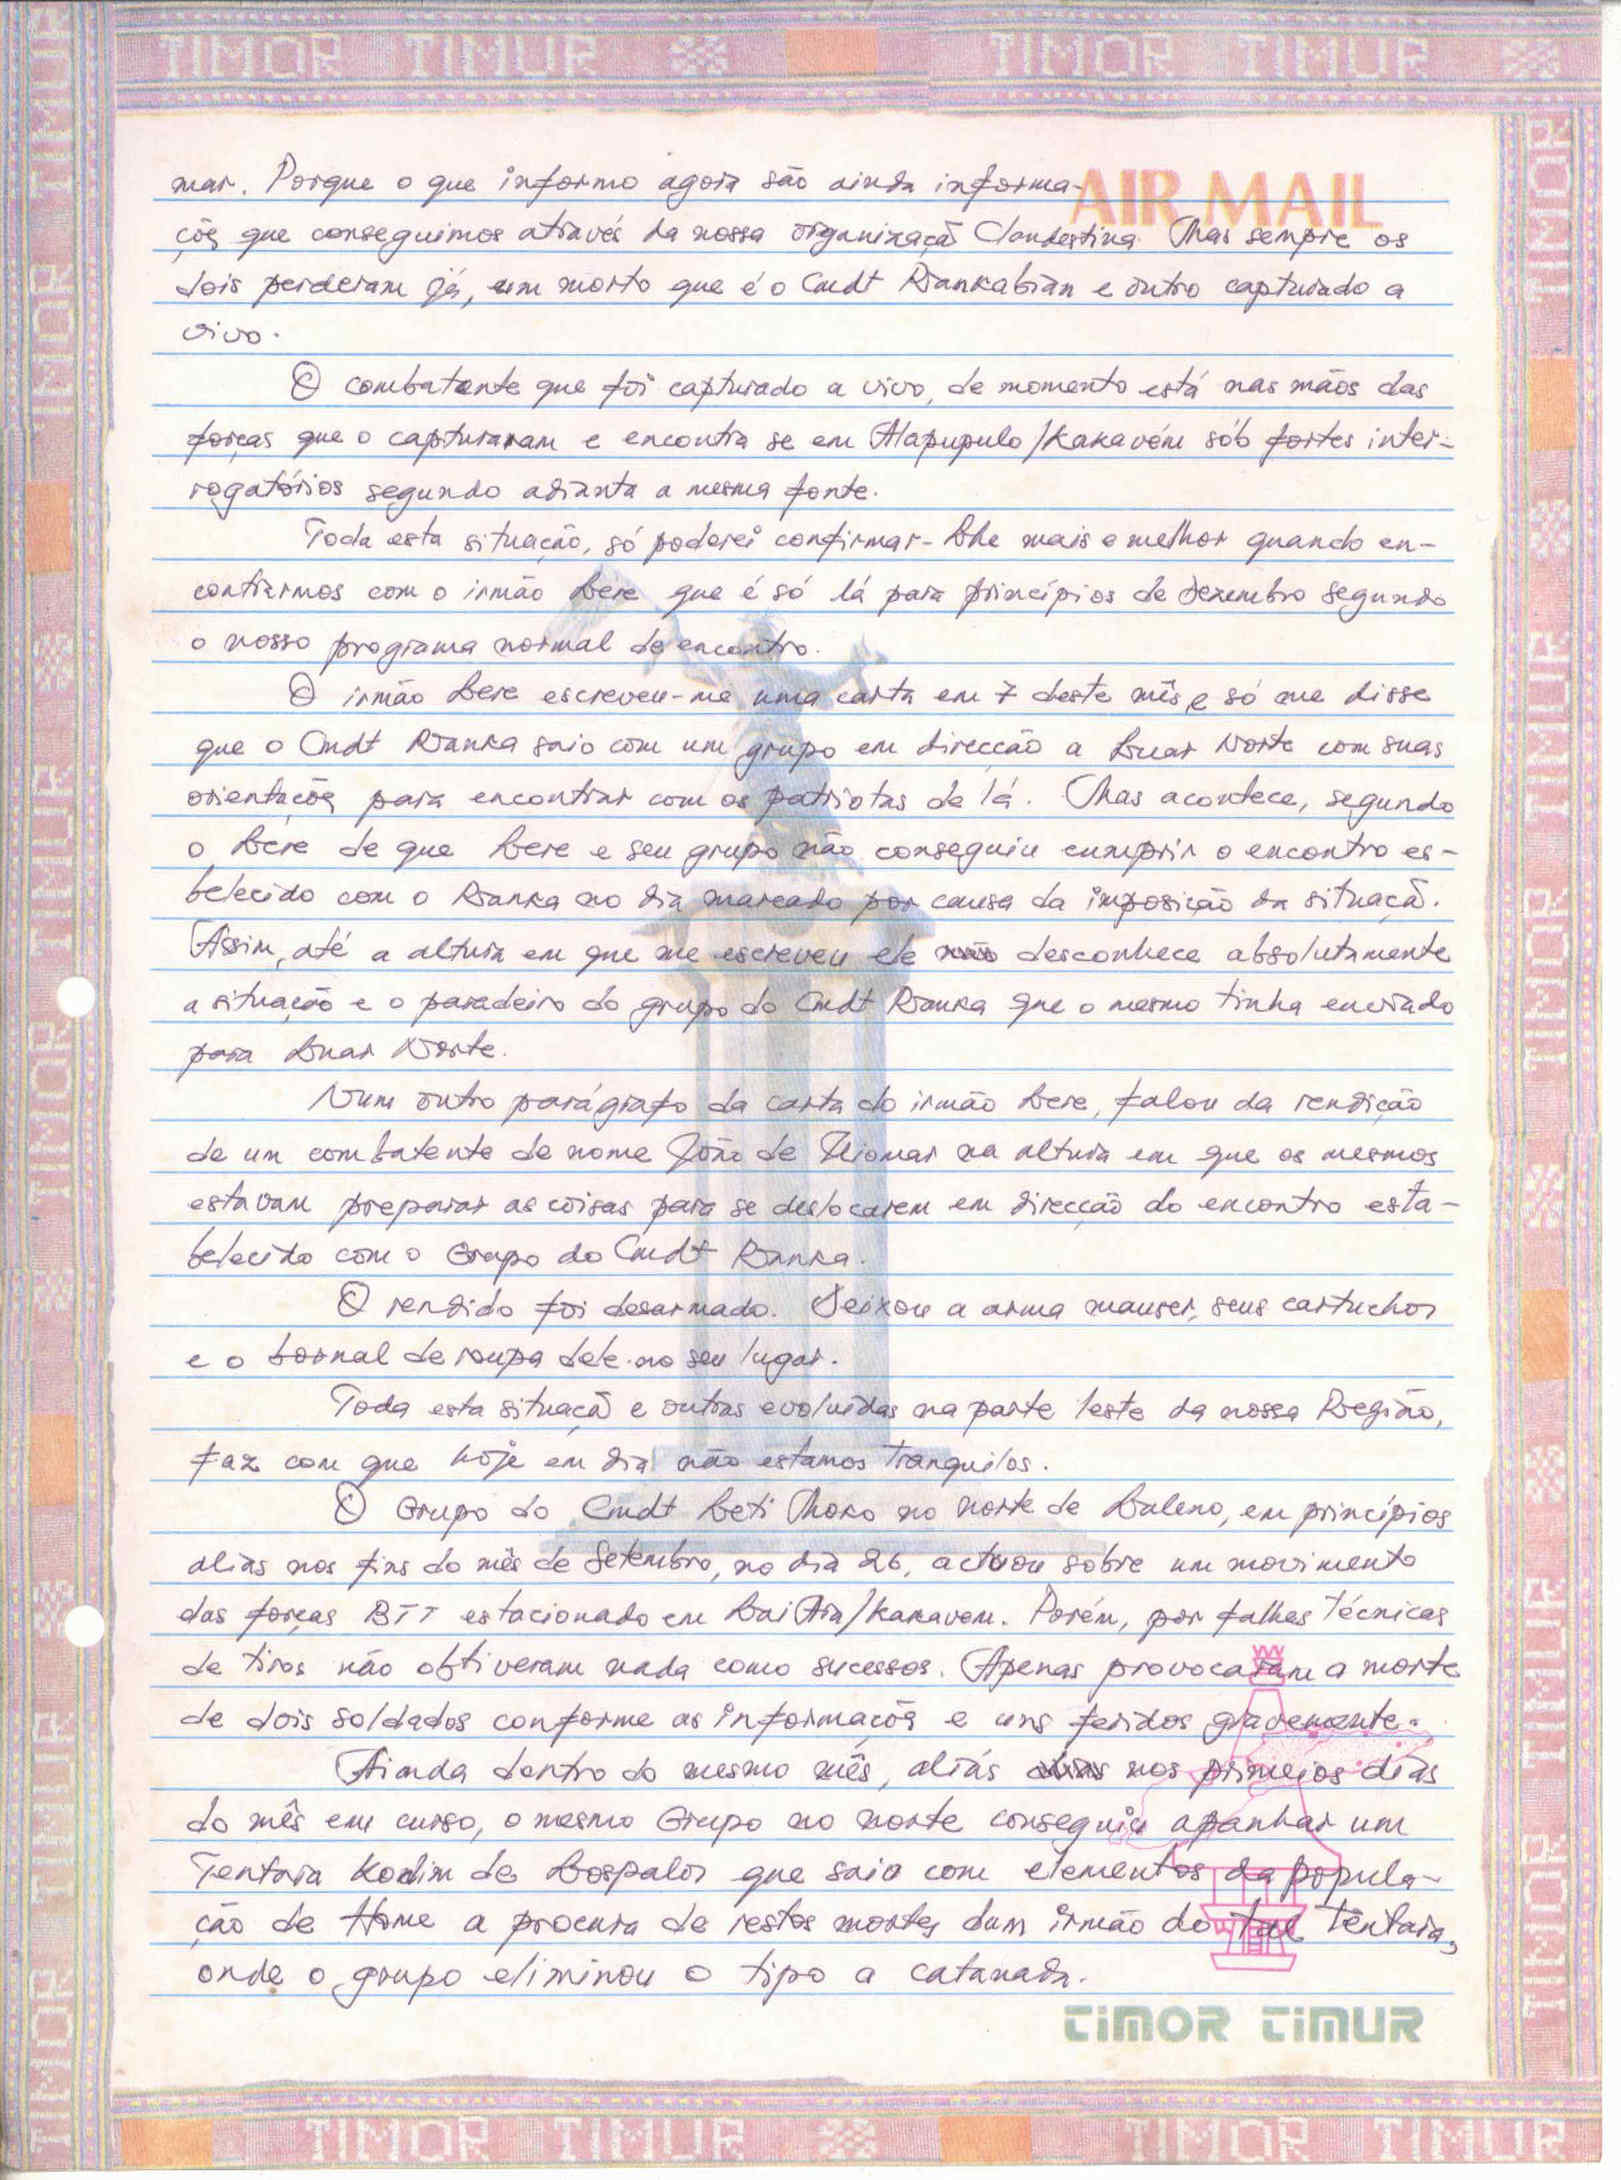 TIMOR TIMUR TIMOR TIMUR
AIR MAIL
mar. Porque o que informo agora são ainda informa-
çõs que conseguimos através da nossa organizaçã Clandestina. Mas sempre os
dois perderam já, um morto que é o Cmdt Riankabian e outro capturado a
vivo.
O combatente que foi capturado a vivo, de momento está nas mãos das
forças que o capturaram e encontra se em Alapupulo/Kakavém sób fortes inter-
rogatórios segundo adianta a mesma fonte.
Toda esta situação, só poderei confirmar-Lhe mais e melhor quando en-
contrarmos com o irmão Lere que é só lá para princípios de Dezembro segundo
o nosso programa normal de encontro.
O irmão Lere escreveu-me uma carta em 7 deste mês e só me disse
que o Cmdt Rianka saio com um grupo em direcção a Luar Norte com suas
orientaçõs para encontrar com os patriotas de lá. Mas acontece, segundo
o Lere de que Lere e seu grupo não conseguiu cumprir o encontro es-
belecido com o Rianka no dia marcado por causa da imposição da situaçã.
Assim, até a altura em que me escreveu ele não desconhece absolutamente
a situação e o paradeiro do grupo do Cmdt Rianka que o mesmo tinha enviado
para Luar Norte.
Num outro parágrafo da carta do irmão Lere, falou da rendição
de um combatente de nome João de Liomar na altura em que os mesmos
estavam preparar as coisas para se deslocarem em direcção do encontro esta-
belecido com o Grupo do Cmdt Rianka.
O rendido foi desarmado. Deixou a arma mauser, seus cartuchos
e o bornal de roupa dele no seu lugar.
Toda esta situaçã e outras evoluídas na parte leste da nossa Região,
faz com que hoje em dia não estamos tranquilos.
O Grupo do Cmdt Leti Moko no norte de Luleno, em princípios
alias nos fins do mês de Setembro, no dia 26, actuou sobre um movimento
das forças BTT estacionado em Lai Ara/Kakavem. Porém, por falhas técnicas
de tiros não obtiveram nada como sucessos. Apenas provocaram a morte
de dois soldados conforme as informaçõs e uns feridos gravemente.
Ainda dentro do mesmo mês, aliás nos primeios dias
do mês em curso, o mesmo Grupo no norte conseguiu apanhar um
Tentara Kodim de Lospalos que saio com elementos da popula-
ção de Home a procura de restos mortes dum irmão do tal Tentara,
onde o grupo eliminou o tipo a catanada.
TIMOR TIMUR
TIMOR TIMUR TIMOR TIMUR